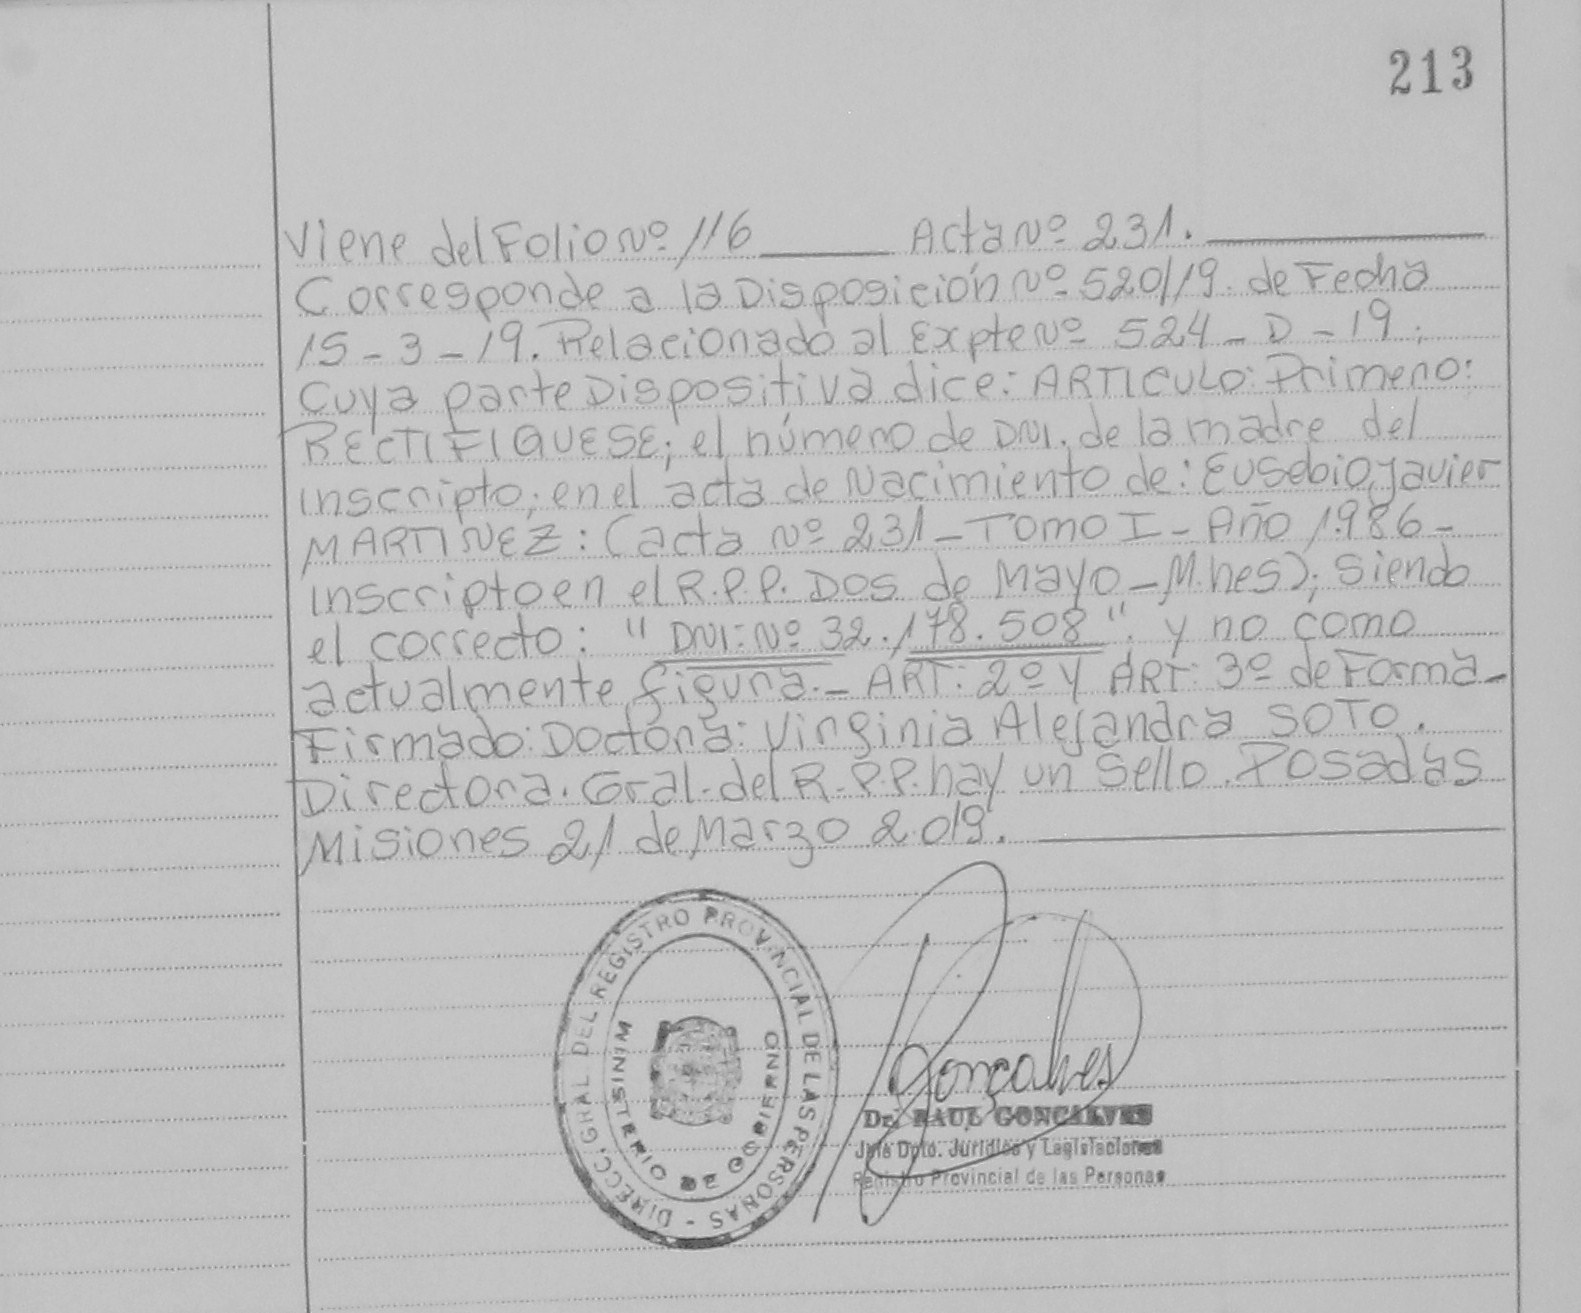 213
Viene del Folio Nº 116 ______ Acta Nº 231. ______
Corresponde a la Disposición Nº 520/19. de Fecha
15-3-19. Relacionado al Expte Nº 524-D-19;
Cuya parte Dispositiva dice: ARTICULO: Primero:
RECTIFIQUESE; el número de DNI. de la madre del
inscripto; en el acta de Nacimiento de: Eusebio Javier
MARTINEZ: (acta Nº 231-TOMO I- Año 1.986-
inscripto en el R.P.P. Dos de Mayo-M.nes); Siendo
el correcto: "DNI: Nº 32.178.508". y no como
actualmente figura.- ART: 2º Y ART: 3º de Forma-
Firmado: Doctora: Virginia Alejandra SOTO.
Directora. Gral. del R.P.P. hay un Sello. Posadas
Misiones 21 de Marzo 2.019. ______
DIRECC. GRAL DEL REGISTRO PROVINCIAL DE LAS PERSONAS -
MINISTERIO DE GOBIERNO
Gonçalves
Dr. RAUL GONCALVES
Jefe Dpto. Jurídico y Legislaciones
Registro Provincial de las Personas